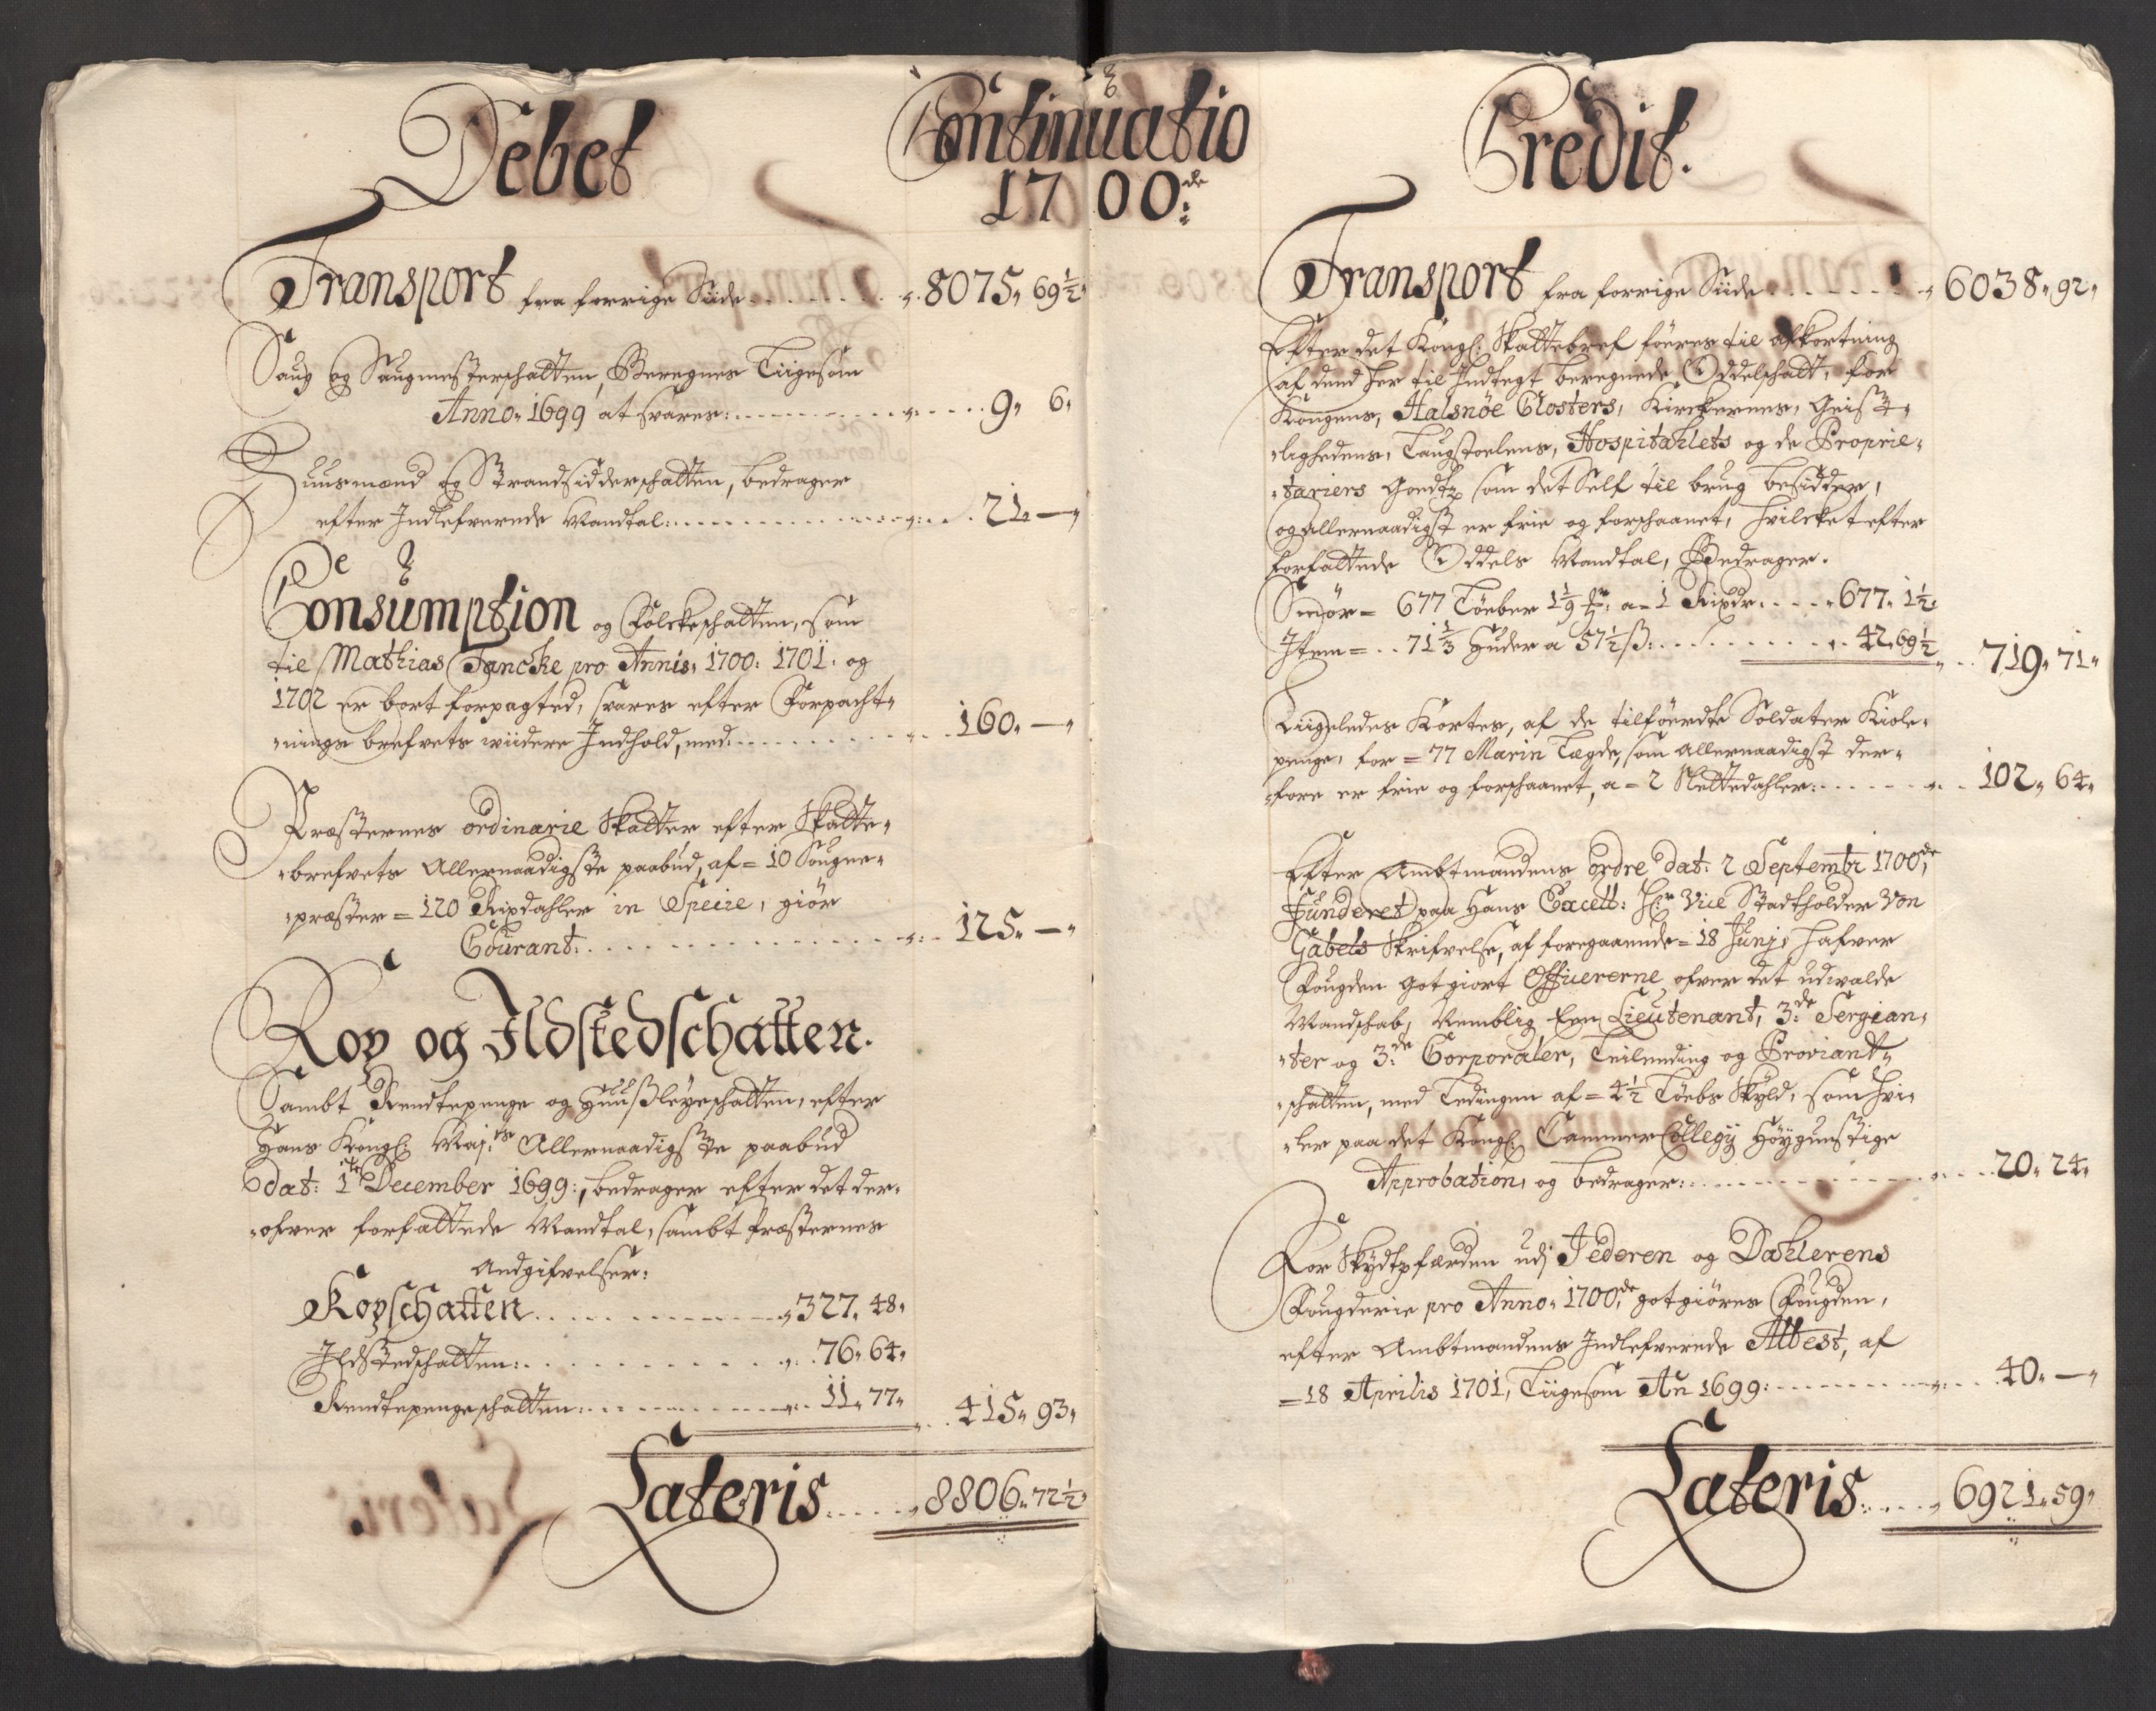 Debet
Continuatio
1700de
Transport fra forrige Siide 8075 69½
Saug og Saugmesterschatten, Beregnes Liigesom
Anno 1699 at svares: 9 6
Huusmænd og Strandsidderschatten, bedrager
efter Indlefverede Mandtal: 21 —
Consumption og Folckeschatten, som
til Mathias Tancke pro Annis 1700: 1701: og
1702 er bort forpagted, svares efter Forpacht-
nings brefvets viidere Indhold, med 160 —
Præsternes ordinarie Skatter efter Skatte-
brefvets Allernaadigste paabud, af = 10 Sougne-
præster = 120 Rixdahler in Specie, giør
Courant: 125 —
Kop og Ildstedschatten.
Sambt Rendtepenge og Huusleyeschatten, efter
Hans Kongl: Maj:ts Allernaadigste paabud
dat: 1te December 1699:, bedrager efter det der-
ofver forfattede Mandtal, sambt Præsternes
Andgifvelser:
Kopschatten 327 48
Ildstedschatten: 76 64
Rendtepengeschatten: 11 77 415 93
Lateris 8806 72½
Credit.
Transport fra forrige Siide 6038 92
Efter det Kongl: Skattebref føeres til afkortning
af dend her til Indtegt beregnede Oddelschatt, for
Kongens, Halsnöe Closters, Kirckernes, Geist-
lighedens, Laugstoelens, Hospitahlets og de Proprie-
tariers Godtz som det Self til brug besidder,
og allernaadigst er frie og forschaanet, hvilcket efter
forfattede Oddels Mandtal, Bedrager.
Smör = 677 Löeber 1 1/9 a = 1 Rixdr 677 1½
Item = 71⅓ Huder a 57½ ß: 42 69½ 719 71
Liigeledes Kortes, af de tilføerdte Soldater Kiole-
penge, for = 77 Marin Lægde, som Allernaadigst der-
fore er frie og forschaanet, a = 2 Slettedahler: 102 64
Efter Ambtmandens ordre dat: 2 Septembr 1700de,
Funderet paa Hans Excell: Hr Vice Stadtholder Von
Gabels Skrifvelse, af foregaaende = 18 Junj, hafver
Fougden got giort Officererne ofver det udvalde
Mandschab, Nemblig Een Lieutenant, 3de Sergian-
ter og 3de Corporaler, Leilending og Proviant-
schatten, med Ledingen af = 4½ Löebs Skyld, som hvi-
ler paa det Kongl: Cammer Collegij Höygunstige
Approbation, og bedrager: 20 24
For Skydtzfærden udj Jederen og Dahlerens
Fougderie pro Anno 1700de, godtgiøres Fougden,
efter Ambtmandens Indlefverede Attest, af
= 18 Aprilis 1701, Liigesom An 1699: 40 —
Lateris 6921 59